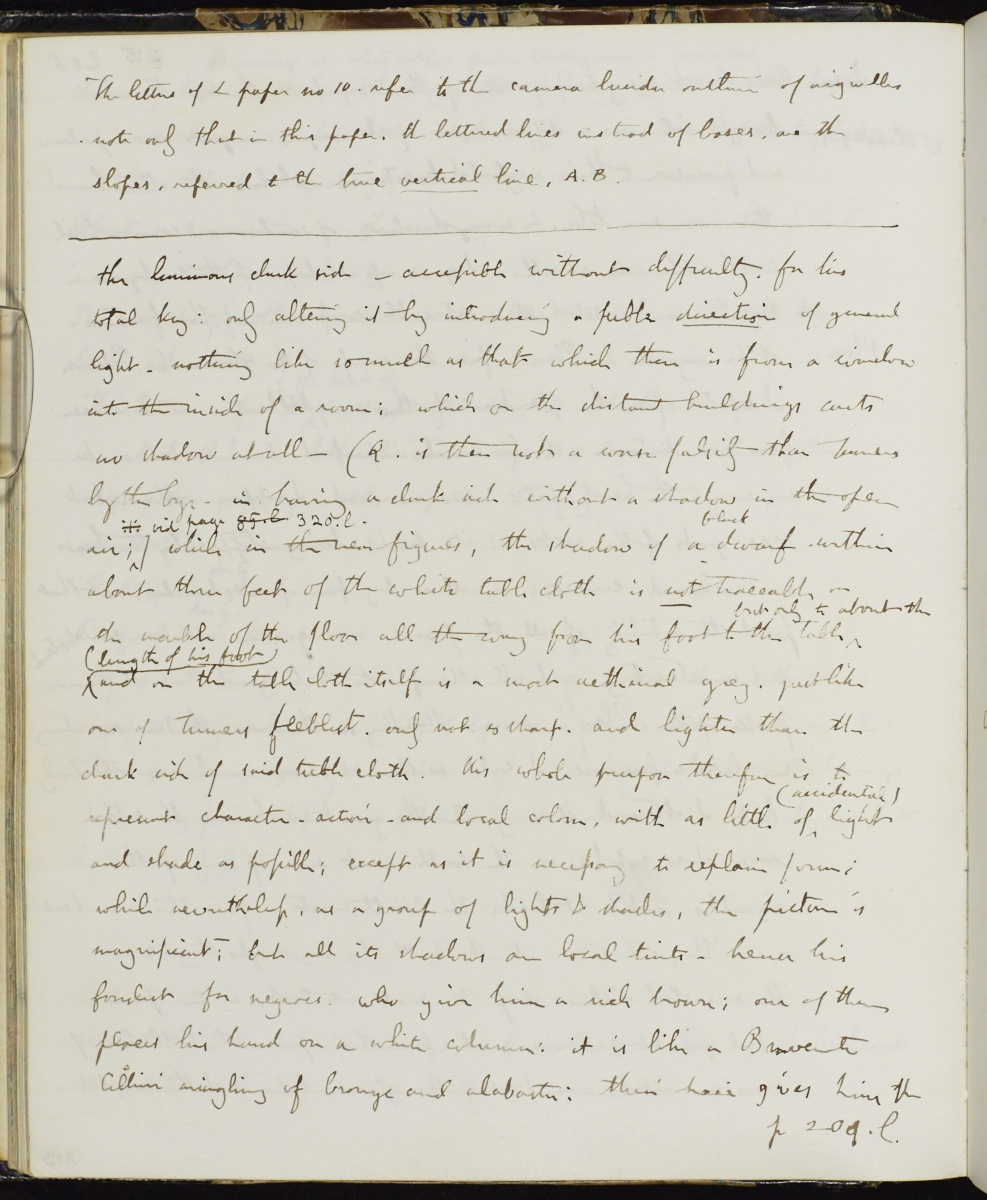 The letters of L paper no 10. refer to the camera lucida outline of aiguilles
note only that in this paper. the lettered lines instead of bases. are the
slopes, referred to the true vertical line, A.B.
the luminous dark side - accessible without difficulty. for his
total key: only altering it by introducing a subtle direction of general
light - nothing like so much as that which there is from a window
into the inside of a room; which on the distant buildings casts
no shadow at all - (Q. is there not a worse falsity than Turners
by the bye - in having a dark side without a shadow in the open
vid page 85.l 320.l.
air;] while in the near figures, the shadow of a black dwarf within
about three feet of the white table cloth is not traceable on
but only to about the
the marble of the floor all the way from his foot to the table
(length of his foot)
and on the table cloth itself is a most aetherial grey. just like
one of Turners feeblest. only not so sharp. and lighter than the
dark side of said table cloth. His whole purpose therefore is to
(accidental)
represent character - action - and local colour, with as little of light
and shade as possible; except as it is necessary to explain form;
while nevertheless, as a group of lights & shades, the picture is
magnificent; but all its shadows are local tints - hence his
fondness for negroes. who give him a rich brown; one of them
places his hand on a white column: it is like a Benvenuto
Cellini mingling of bronze and alabaster: their hair gives him the
p 209.l.